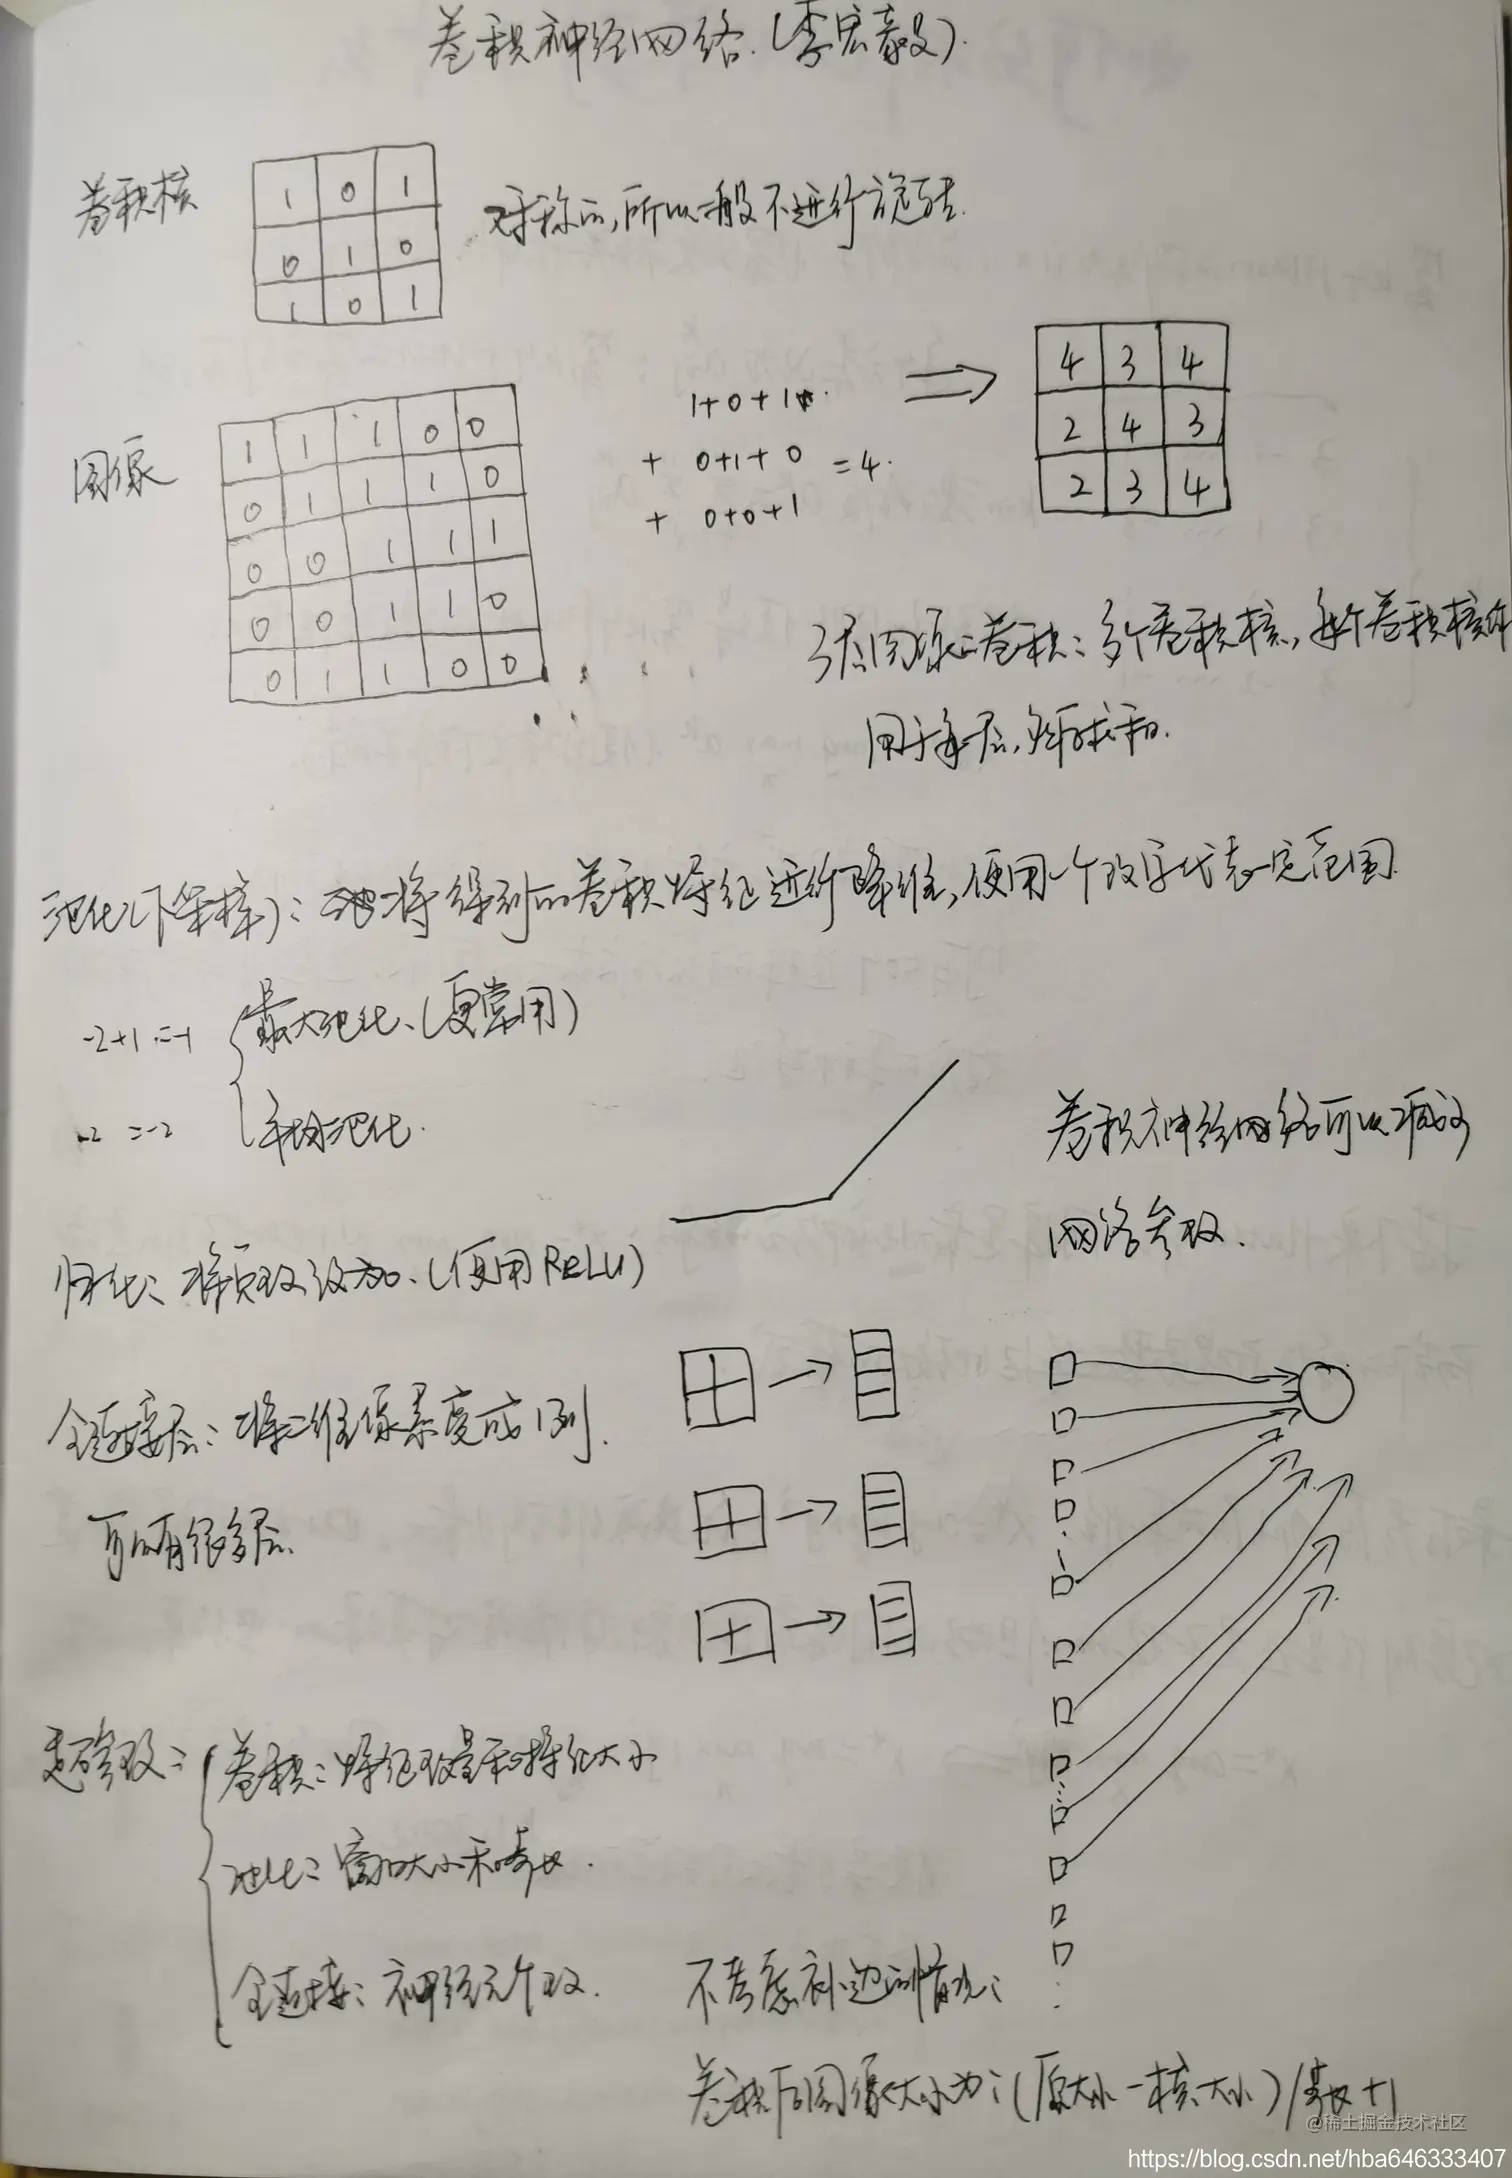 卷积神经网络.(李宏毅).
卷积核
1 0 1
0 1 0
1 0 1
对称的,所以一般不进行旋转.
图像
1 1 1 0 0
0 1 1 1 0
0 0 1 1 1
0 0 1 1 0
0 1 1 0 0
1+0+1
+ 0+1+0 =4.
+ 0+0+1
4 3 4
2 4 3
2 3 4
3层图像的卷积:多个卷积核,每个卷积核作
用于每层,然后求和.
池化(下采样):将得到的卷积特征进行降维,使用一个数字代表一定范围.
-2+1=-1
-2 =-2
最大池化、(更常用)
平均池化.
卷积神经网络可以减少
网络参数.
归一化:将负数设为0、(使用ReLU)
全连接层:将二维像素变成1列.
可以有很多层.
超参数:
卷积:特征数量和特征大小
池化:窗口大小和步长.
全连接:神经元个数.
不考虑补边的情况:
卷积后图像大小为:(原大小-核大小)/步长+1
@稀土掘金技术社区
https://blog.csdn.net/hba646333407